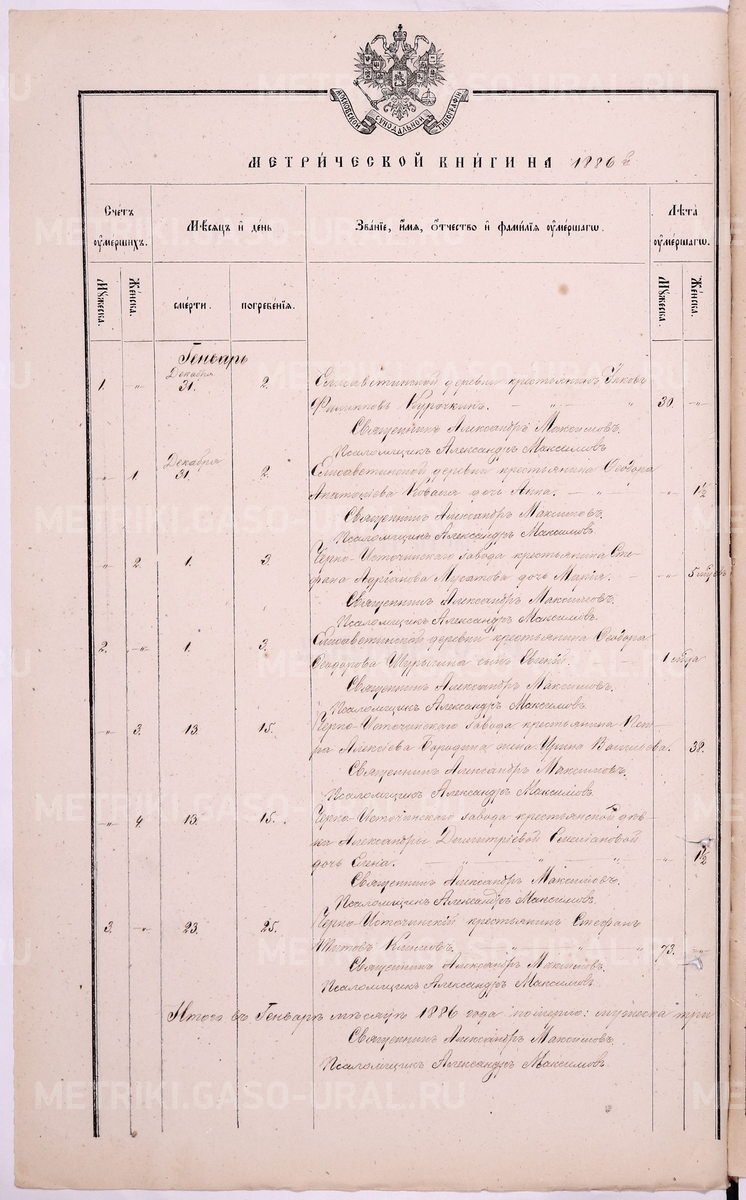 МОСКОВСКОЙ СѴНОДАЛЬНОЙ ТИПОГРАФІИ
МЕТРИ́ЧЕСКОЙ КНИ́ГИ НА 1886 г.
Сче́тъ ᲂу҆ме́ршихъ.
Мꙋ́жеска.
Же́нска.
Мѣ́сяцъ и҆ де́нь
сме́рти.
погребе́нїѧ.
Зва́нїе, и҆́мѧ, ѻ҆́тчество и҆ фами́лїѧ ᲂу҆ме́ршагѡ.
Лѣ́та ᲂу҆ме́ршагѡ.
Мꙋ́жеска.
Же́нска.
Генварь
1 " Декабря 31. 2. Елисаветинской деревни крестьянинъ Іаковъ
Филипповъ Курочкинъ. — " — " 30. — " —
Священникъ Александръ Максимовъ.
Псаломщикъ Александръ Максимовъ
" 1. Декабря 31. 2. Елисаветинской деревни крестьянина Ѳеодора
дочь Анна. — " — " 1½
Священникъ Александръ Максимовъ.
Псаломщикъ Александръ Максимовъ
" 2. 1. 3. Черно-Источинскаго завода крестьянина Сте-
фана Адріанова Мусатова дочь Марія. — " 5 мѣсяц
Священникъ Александръ Максимовъ.
Псаломщикъ Александръ Максимовъ.
2. — " 1. 3. Елисаветинской деревни крестьянина Ѳеодора
Ѳеодорова Шурыгина сынъ Евгеній. — 1 мѣсяца
Священникъ Александръ Максимовъ.
Псаломщикъ Александръ Максимовъ.
" 3. 13. 15. Черно-Источинскаго завода крестьянина Пет-
ра Алексѣева Бородина жена Ирина Васильева. 38.
Священникъ Александръ Максимовъ.
Псаломщикъ Александръ Максимовъ.
" 4. 13. 15. Черно-Источинскаго завода крестьянской дѣв-
ки Александры Димитріевой
дочь Елена. — " — " — " 1½
Священникъ Александръ Максимовъ.
Псаломщикъ Александръ Максимовъ.
3. — " 23. 25. Черно-Источинскій крестьянинъ Стефанъ
Титовъ Климовъ. " " " 73. — " —
Священникъ Александръ Максимовъ.
Псаломщикъ Александръ Максимовъ.
Итого въ Генварѣ мѣсяцѣ 1886 года померло: мужеска три
Священникъ Александръ Максимовъ.
Псаломщикъ Александръ Максимовъ.
METRIKI.GASO-URAL.RU